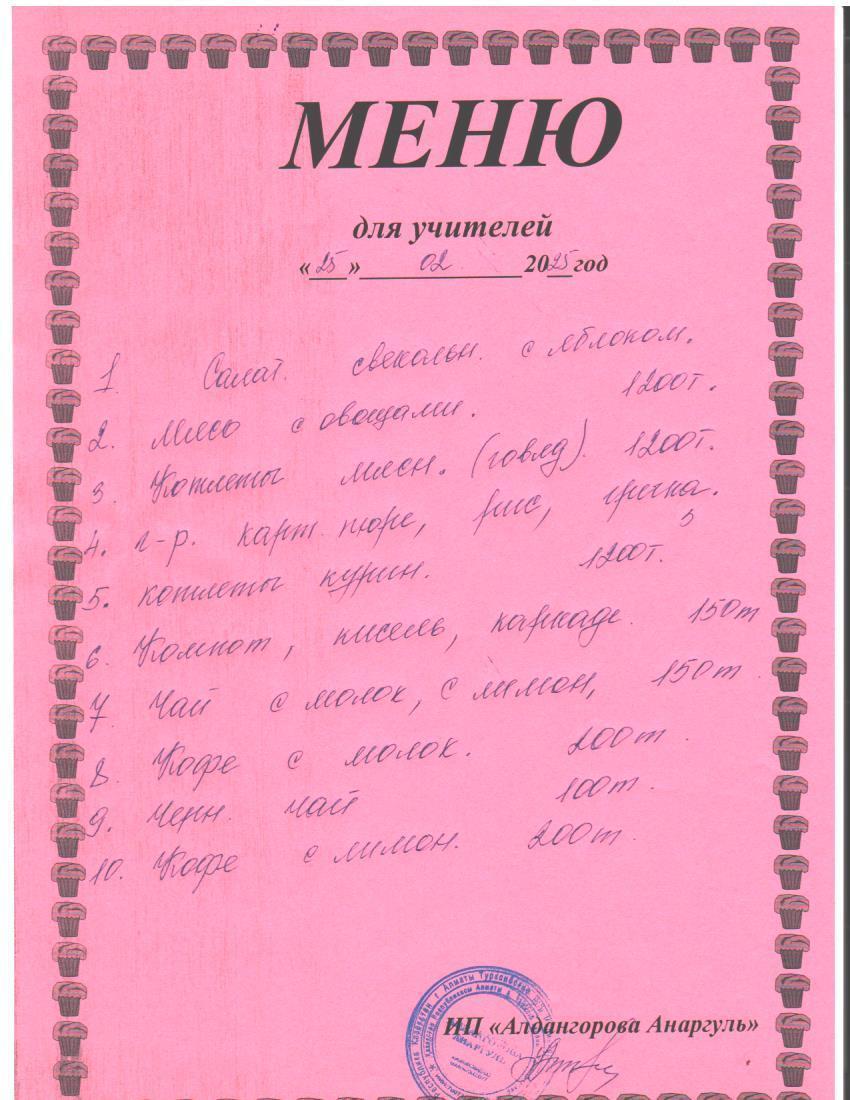 МЕНЮ
для учителей
«25» 02 2025 год
1 Салат. свекольн. с яблоком.
2. Мясо с овощами. 1200т.
3. Котлеты мясн. (говяд). 1200т.
4. г-р. карт. пюре, рис, гречка.
5. котлеты курин. 1200т.
6. Компот, кисель, каркаде. 150т
7. Чай с молок, с лимон, 150т
8. Кофе с молок. 200т.
9. Черн. чай 100т.
10. Кофе с лимон. 200т.
ИП «Алдангорова Анаргуль»
Республика Казахстан г. Алматы Турксибский
АНАРГУЛЬ